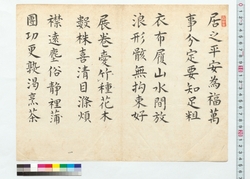 居之平安為福萬
事分定要知足粗
衣布履山水間放
浪形骸無拘束好
展卷愛竹種花木
數株喜清目滌煩
襟遠塵俗靜裡蒲
團功更敦渴烹茶